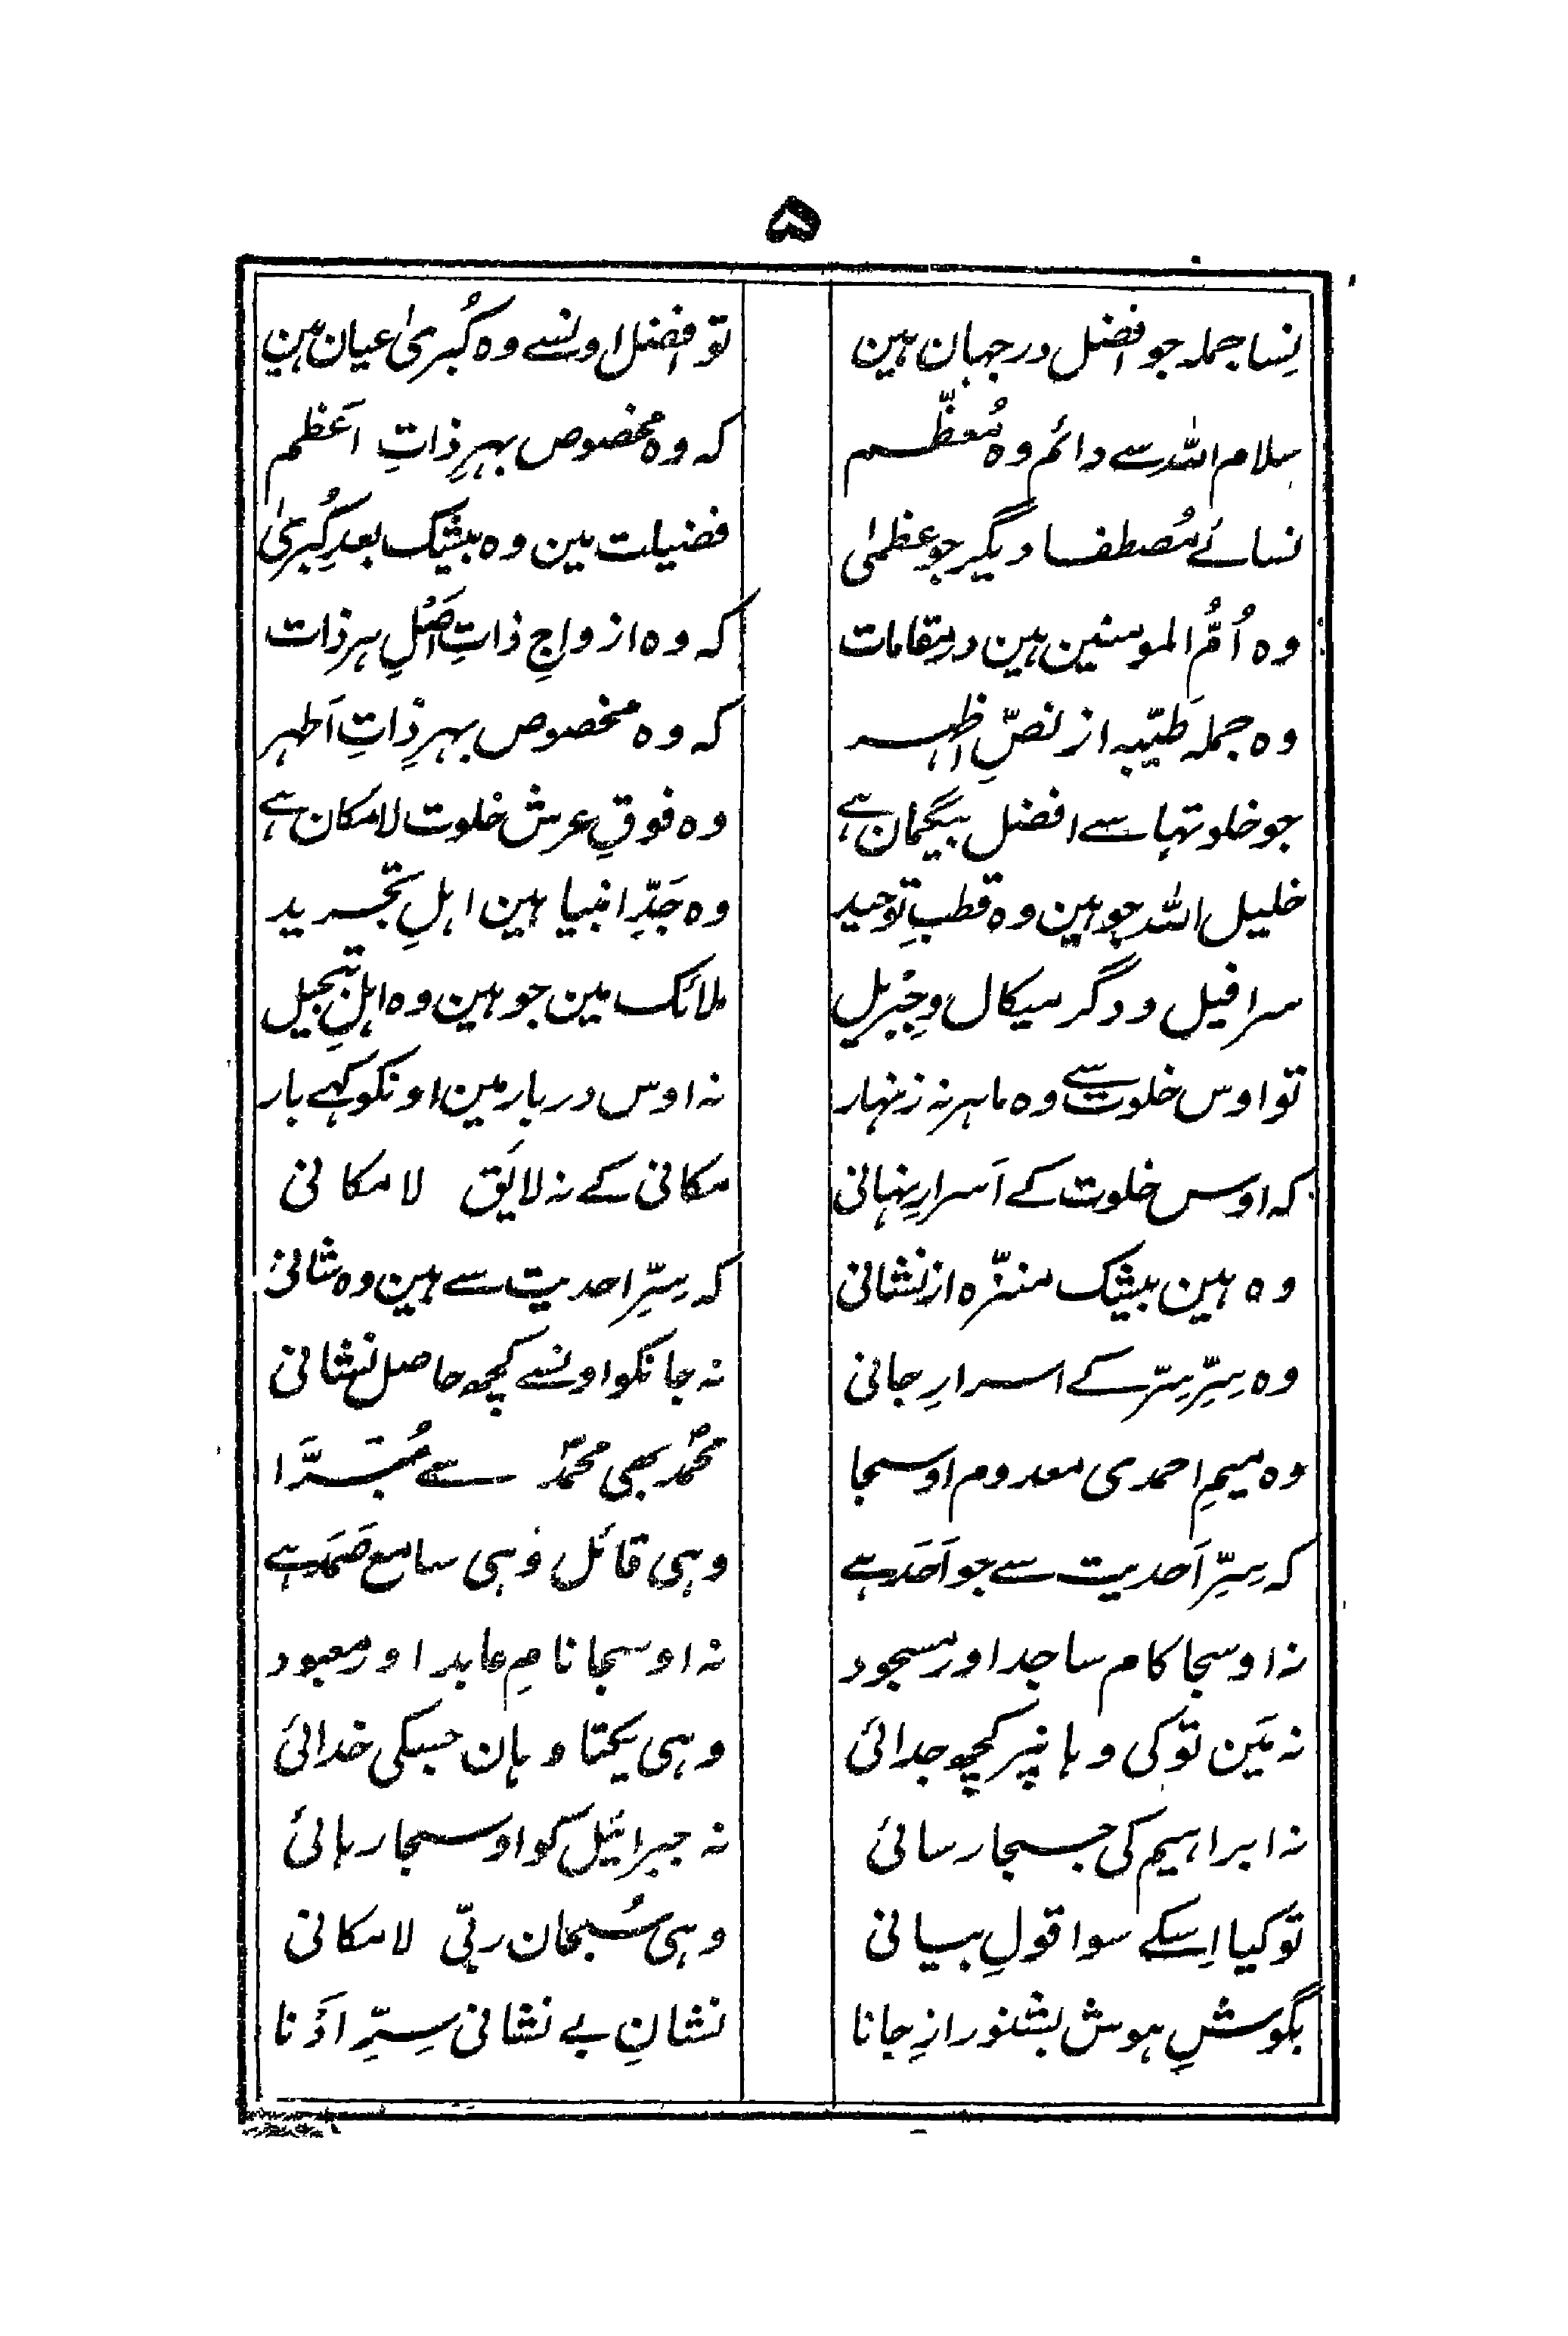 ۵
نِسا جملہ جو افضل در جہان ہین
تو افضل اونسے وہ کُبریٰ عیان ہین
سلام اللہ سے دائم وہ مُعظّم
کہ وہ مخصوص بہرِ ذاتِ اَعظم
نسائے مُصطفا دیگر جو عظمیٰ
فضیلت مین وہ بیشک بعدِ کُبریٰ
وہ اُمُّ المومنین ہین در مقامات
کہ وہ ازواجِ ذاتِ اَصْلِ ہر ذات
وہ جملہ طَیّبہ از نصِّ اظہر
کہ وہ مخصوص بہرِ ذاتِ اَطہر
جو خلوتہا سے افضل بیگمان ہے
وہ فوقِ عرش خلوت لامکان ہے
خلیل اللہ جو ہین وہ قطبِ توحید
وہ جَدِّ انبیا ہین اہلِ تجرید
سرافیل و دگر میکال و جِبْریل
ملائک مین جو ہین وہ اہلِ تبجیل
تو اوس خلوت سے وہ ماہر نہ زنہار
نہ اوس دربار مین اونکو کہے بار
کہ اوس خلوت کے اَسرارِ نہانی
مکانی کے نہ لایَق لامکانی
وہ ہین بیشک منزّہ از نشانی
کہ سِرِّ احدیت سے ہین وہ شانی
وہ سِرِّ سِرّ کے اسرارِ جانی
نہ جانکو اونسے کچھ حاصل نشانی
وہ میمِ احمدی معدوم اوسجا
محمّدؐ بھی محمّدؐ سے مُبَرَّا
کہ سِرِّ اَحدیت سے جو اَحَد ہے
وہی قائل وُہی سامع صَمَد ہے
نہ اوسجا کام ساجد اور مسجود
نہ اوسجا نام عابد اور معبود
نہ مَین تو کی وہانپر کچھ جدائی
وہی یکتا وہان جسکی خدائی
نہ ابراہیم کی جسجا رسائی
نہ جبرائیل کو اوسجا رہائی
تو کیا اِسکے سوا قولِ بیانی
وہی سُبحان ربّی لامکانی
بگوشِ ہوش بشنو رازِ جانا
نشانِ بے نشانی سِرِّ اَوْ نا